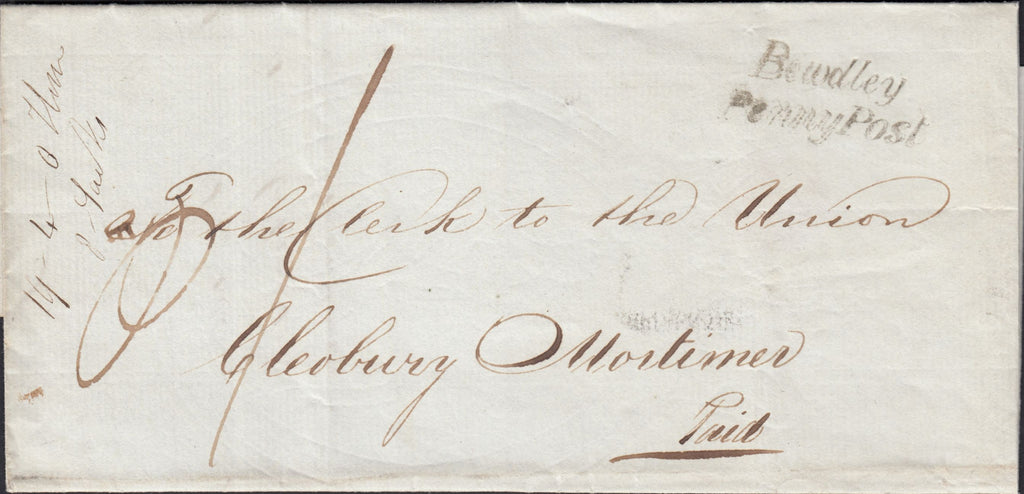 Bewdley
Penny Post
To the Clerk to the Union
Cleobury Mortimer
Paid